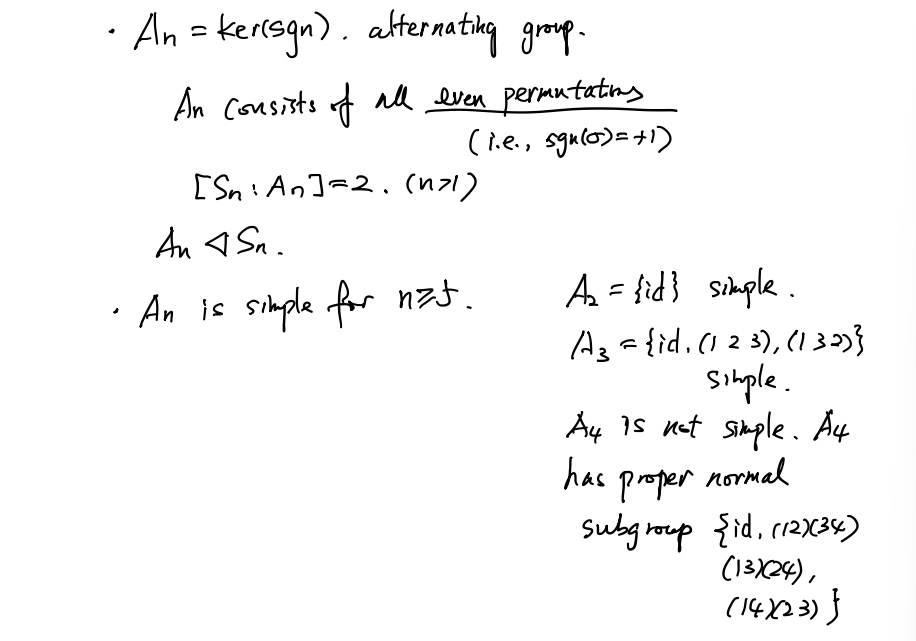 · An = ker(sgn). alternating group.
An consists of all even permutations
(i.e., sgn(σ)=+1)
[Sn : An] = 2. (n>1)
An ◁ Sn.
· An is simple for n≥5.
A2 = {id} simple.
A3 = {id, (1 2 3), (1 3 2)}
simple.
A4 is not simple. A4
has proper normal
subgroup {id, (12)(34)
(13)(24),
(14)(23)}